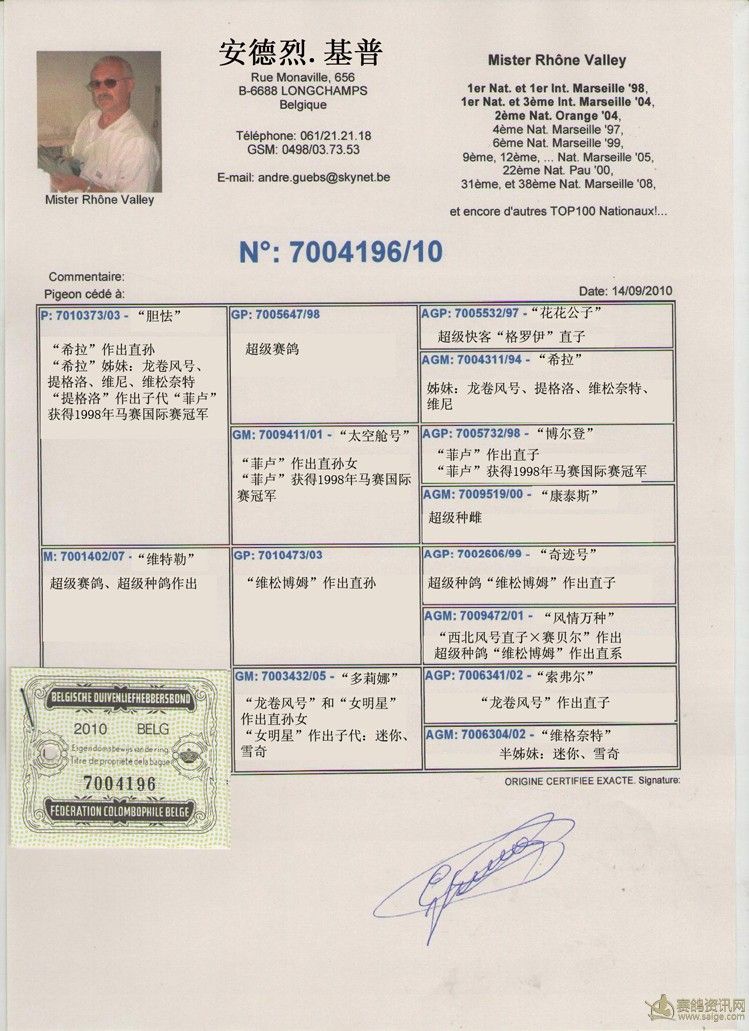 安德烈.基普
Rue Monaville, 656
B-6688 LONGCHAMPS
Belgique
Téléphone: 061/21.21.18
GSM: 0498/03.73.53
E-mail: andre.guebs@skynet.be
Mister Rhône Valley
Mister Rhône Valley
1er Nat. et 1er Int. Marseille '98,
1er Nat. et 3ème Int. Marseille '04,
2ème Nat. Orange '04,
4ème Nat. Marseille '97,
6ème Nat. Marseille '99,
9ème, 12ème, ... Nat. Marseille '05,
22ème Nat. Pau '00,
31ème, et 38ème Nat. Marseille '08,
et encore d'autres TOP100 Nationaux!...
N°: 7004196/10
Commentaire:
Pigeon cédé à:
Date: 14/09/2010
P: 7010373/03 - “胆怯”
“希拉”作出直孙
“希拉”姊妹：龙卷风号、
提格洛、维尼、维松奈特
“提格洛”作出子代“菲卢”
获得1998年马赛国际赛冠军
M: 7001402/07 - “维特勒”
超级赛鸽、超级种鸽作出
GP: 7005647/98
超级赛鸽
GM: 7009411/01 - “太空舱号”
“菲卢”作出直孙女
“菲卢”获得1998年马赛国际
赛冠军
GP: 7010473/03
“维松博姆”作出直孙
GM: 7003432/05 - “多莉娜”
“龙卷风号”和“女明星”
作出直孙女
“女明星”作出子代：迷你、
雪奇
AGP: 7005532/97 - “花花公子”
超级快客“格罗伊”直子
AGM: 7004311/94 - “希拉”
姊妹：龙卷风号、提格洛、维松奈特、
维尼
AGP: 7005732/98 - “博尔登”
“菲卢”作出直子
“菲卢”获得1998年马赛国际赛冠军
AGM: 7009519/00 - “康泰斯”
超级种雌
AGP: 7002606/99 - “奇迹号”
超级种鸽“维松博姆”作出直子
AGM: 7009472/01 - “风情万种”
“西北风号直子×赛贝尔”作出
超级种鸽“维松博姆”作出直系
AGP: 7006341/02 - “索弗尔”
“龙卷风号”作出直子
AGM: 7006304/02 - “维格奈特”
半姊妹：迷你、雪奇
ORIGINE CERTIFIEE EXACTE. Signature:
BELGISCHE DUIVENLIEFHEBBERSBOND
2010 BELG
Eigendomsbewijs van de ring
Titre de propriété de la bague
7004196
FÉDÉRATION COLOMBOPHILE BELGE
赛鸽资讯网
www.saige.com